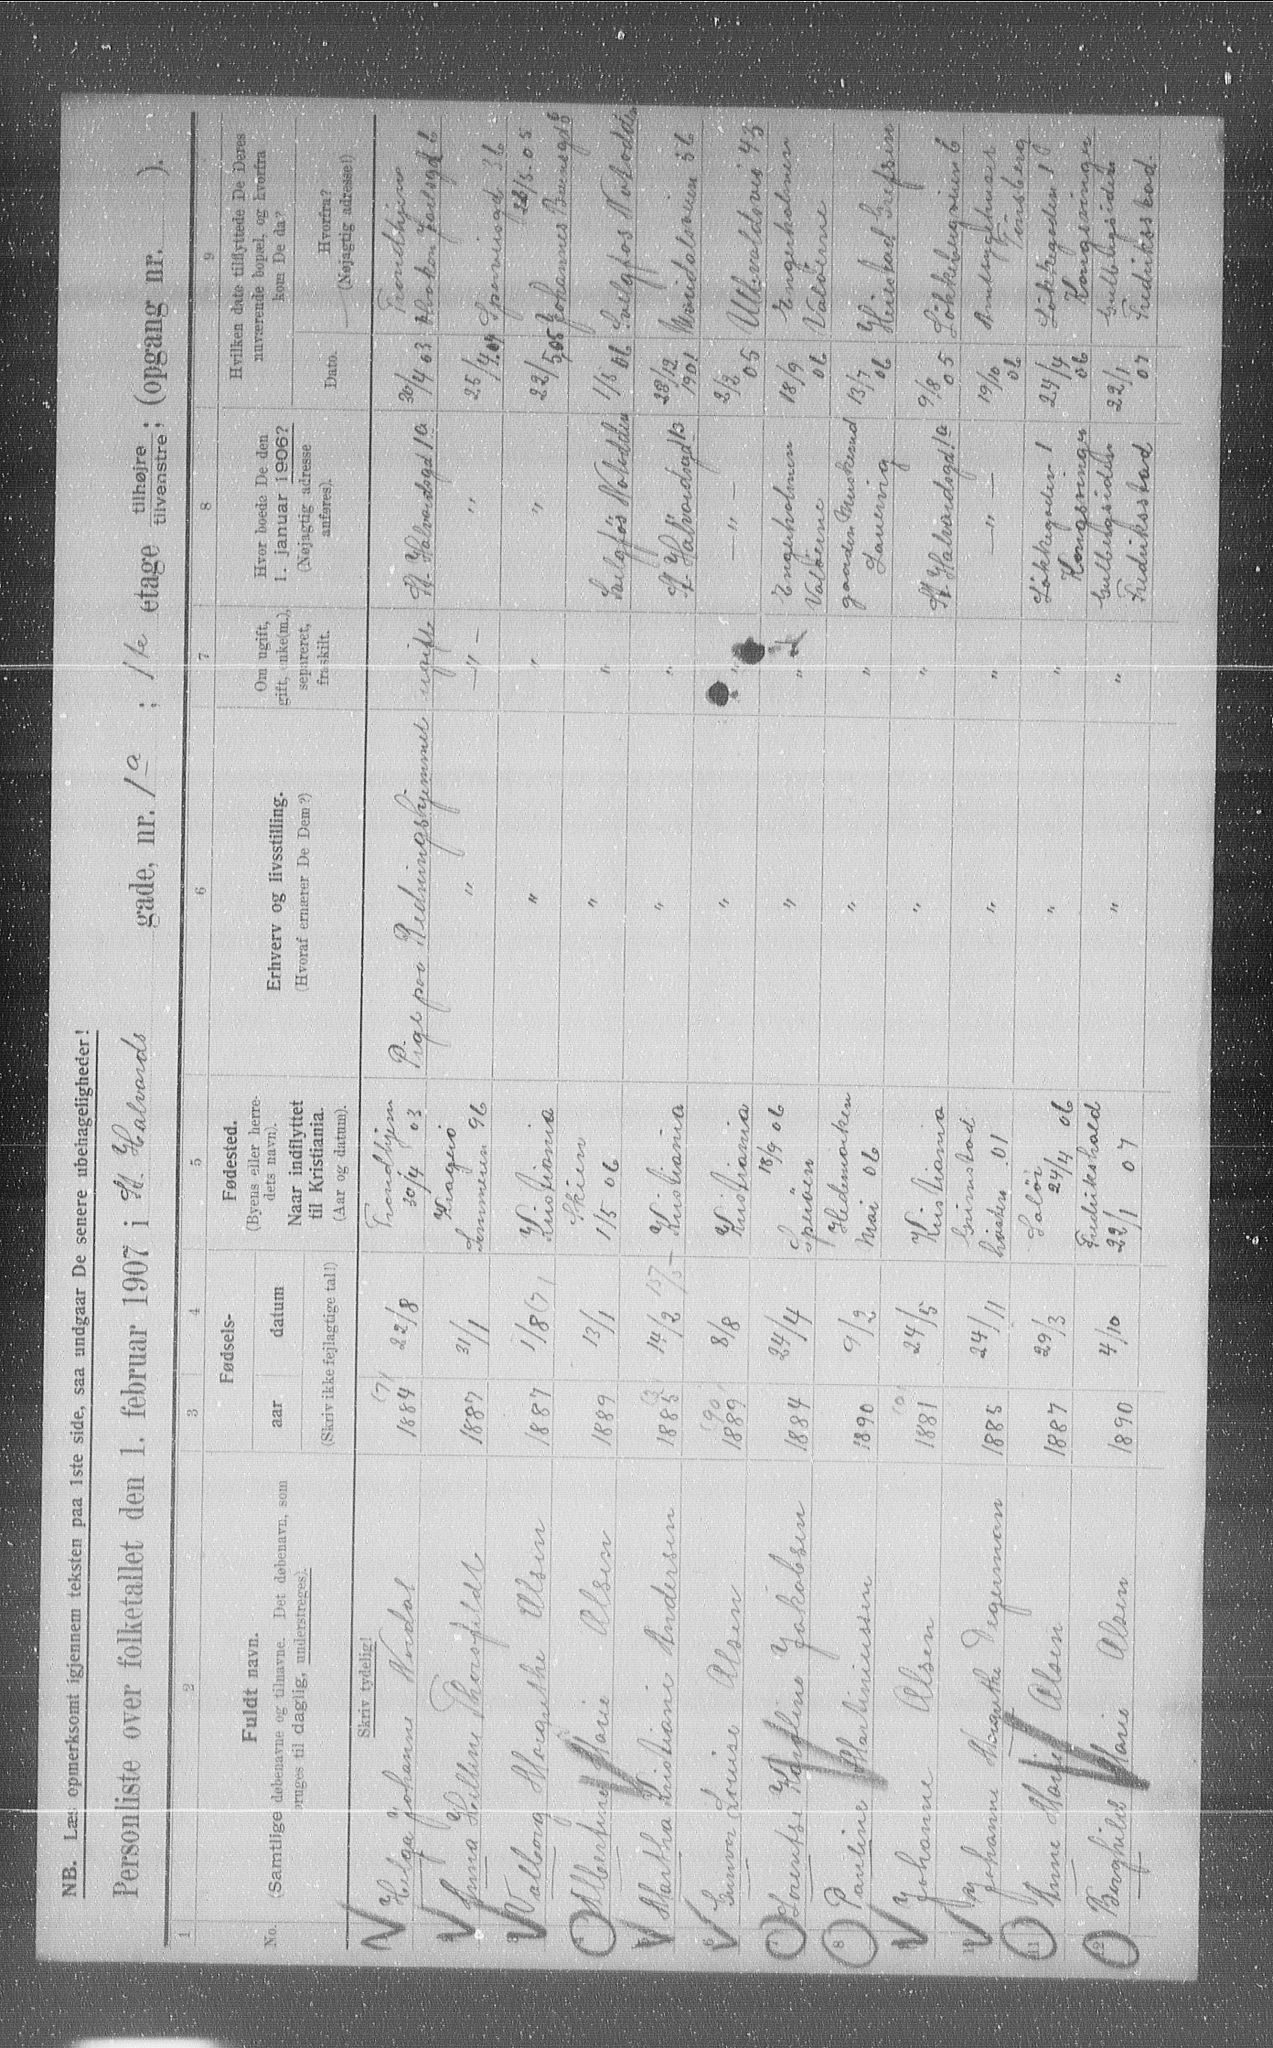 NB. Læs opmerksomt igjennem teksten paa 1ste side, saa undgaar De senere ubehageligheder!
Personliste over folketallet den 1. februar 1907 i St. Halvards gade, nr. 1a; 1ste etage tilhøjre tilvenstre; (opgang nr. ).
1 2 3 4 5 6 7 8 9
No.
Fuldt navn.
(Samtlige døbenavne og tilnavne. Det døbenavn, som bruges til daglig, understreges).
Fødsels-
aar datum
(Skriv ikke fejlagtige tal!)
Fødested.
(Byens eller herredets navn).
Naar indflyttet til Kristiania.
(Aar og datum).
Erhverv og livsstilling.
(Hvoraf ernærer De Dem?)
Om ugift, gift, enke(m.), separeret, fraskilt.
Hvor boede De den 1. januar 1906?
(Nøjagtig adresse anføres).
Hvilken date tilflyttede De Deres nuværende bopæl, og hvorfra kom De da?
Dato.
Hvorfra?
(Nøjagtig adresse!)
Skriv tydelig!
Helga Johanne Nordal 1884 22/8 Trondhjem 30/4 03 Pige paa Redningshjemmet ugift St. Halvardsgd 1a 30/4 03 Trondhjem
Anna Helene 1887 31/1 Kragerø Sommeren 96 " —"— " 25/4 Sporveisgd 36
3 Valborg Margrethe Olsen 1887 1/8 Kristiania " " " 22/5 05 Johannes Brunsgd 8 28/5.05
Albertine Marie Olsen 1889 13/1 Skien 1/5 06 " " Svelgfos Notodden 1/5 06 Svelgfos Notodden
Martha Kristiane Andersen 1883 14/2 Kristiania " " St. Halvardsgd 1a 28/12 1901 Maridalsveien 56
6 Gunvor Louise Olsen 1889 8/8 Kristiania " " —"— 2/3 05 Ullevoldsvei 43
Lorentse Karoline Jakobsen 1884 24/4 18/9 06 " " Engerholmen Valøerne 18/9 06 Engerholmen Valøerne
8 Pauline Martiniussen 1890 9/2 Hedemarken Mai 06 " " 13/7 06 Grefsen
Johanne Olsen 1881 24/5 Kristiania " " St. Halvardsgd 1a 9/8 05 Løkkebergveien 6
10 Johanne Margrethe Degerman 1885 24/11 Grimstad høsten 01 " " —"— 19/10 06 Amtssygehuset Tønsberg
11 Anne Marie Olsen 1887 29/3 Solør 24/4 06 " " Løkkegaden 1 Kongsvinger 24/4 06 Løkkegaden 1 Kongsvinger
12 Borghild Marie Olsen 1890 4/10 Fredrikshald 22/1 07 " " Gulbergsiden Fredriksstad 22/1 07 Gulbergsiden Fredriksstad.